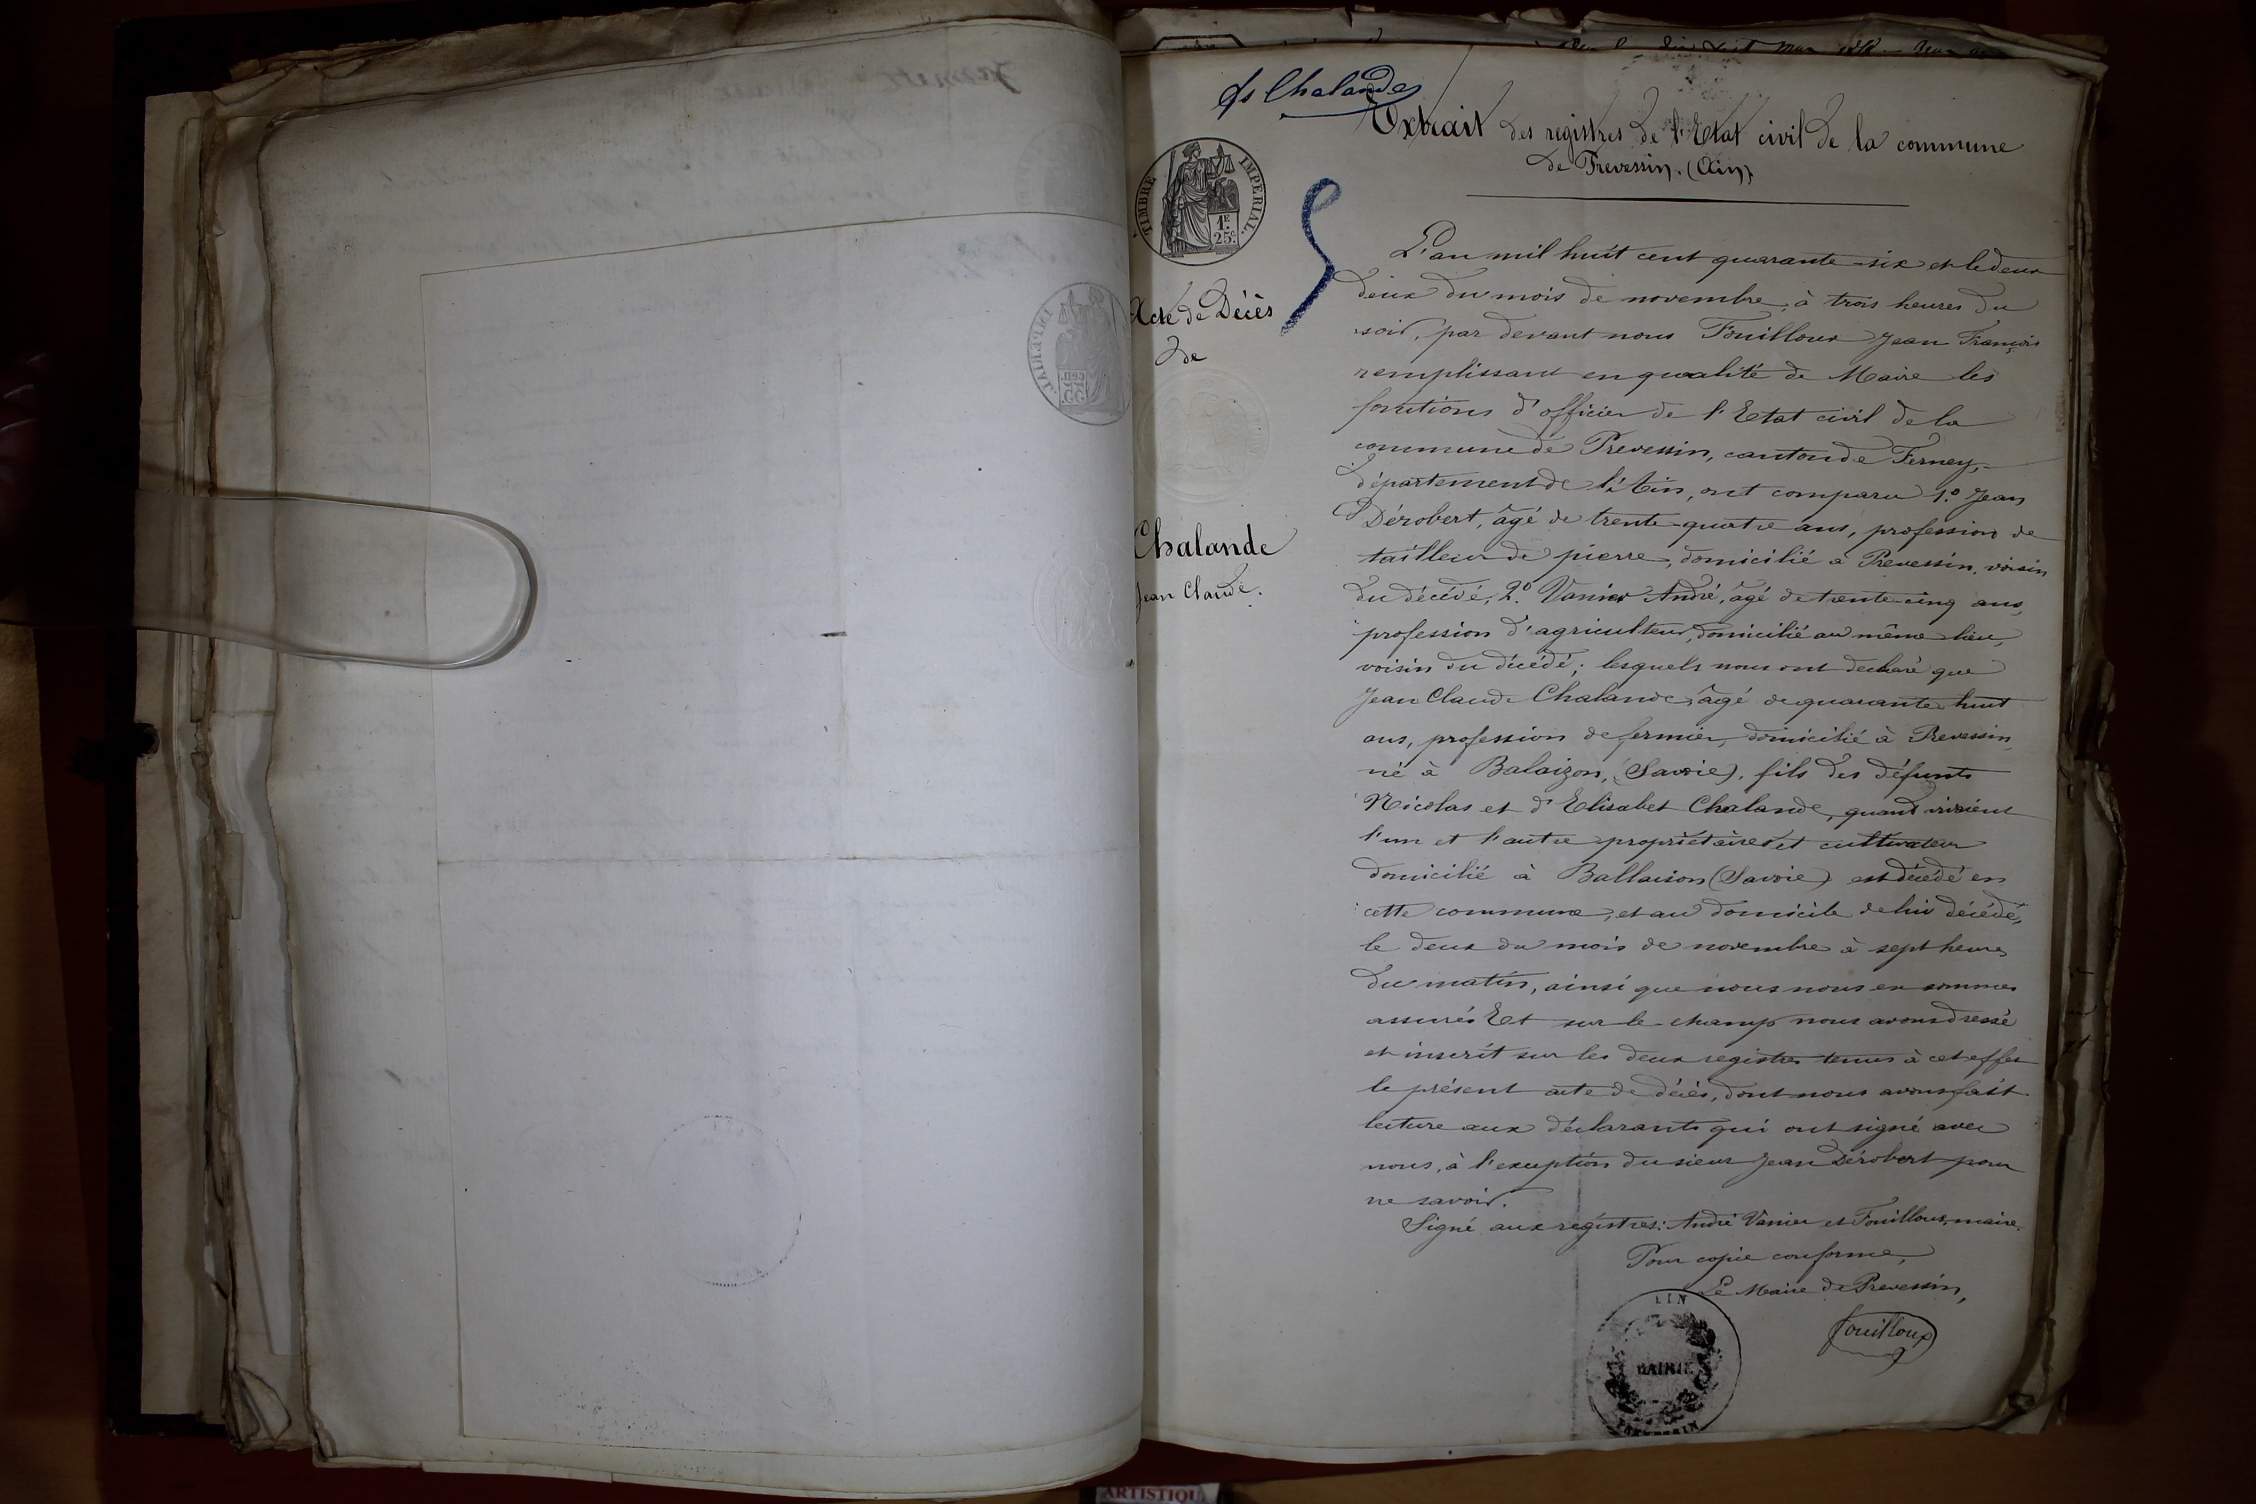 fs Chalande
Extrait des registres de l'Etat civil de la commune
de Prevessin. (Ain)
TIMBRE IMPERIAL
1F
25c
Acte de Décès
de
Chalande
Jean Claude.
L'an mil huit cent quarante-six et le deux
deux du mois de novembre, à trois heures du
soir, par devant nous Fouilloux Jean François
remplissant en qualité de Maire les
fonctions d'officier de l'Etat civil de la
commune de Prevessin, canton de Ferney,
département de l'Ain, ont comparu 1.o Jean
Dérobert, âgé de trente-quatre ans, profession de
tailleur de pierre, domicilié à Prevessin, voisin
du décédé, 2.o Vanier André, âgé de trente-cinq ans,
profession d'agriculteur, domicilié au même lieu,
voisin du décédé; lesquels nous ont declaré que
Jean Claude Chalande, âgé de quarante huit
ans, profession de fermier, domicilié à Prevessin
né à Balaizon, (Savoie), fils des défunts
Nicolas et d'Elisabet Chalande, quand vivaient
l'un et l'autre propriétaires et cultivateur
domicilié à Ballaison (Savoie) est décédé en
cette commune, et au domicile de lui décédé,
le deux du mois de novembre à sept heures
du matin, ainsi que nous nous en sommes
assurés Et sur le champ nous avons dressé
et inscrit sur les deux registres tenus à cet effet
le présent acte de décès, dont nous avons fait
lecture aux déclarants qui ont signé avec
nous, à l'exception du sieur Jean Dérobert pour
ne savoir.
Signé aux registres: André Vanier et Fouilloux, maire.
Pour copie conforme,
Le Maire de Prevessin,
Fouilloux
MAIRIE
ARTISTIQU